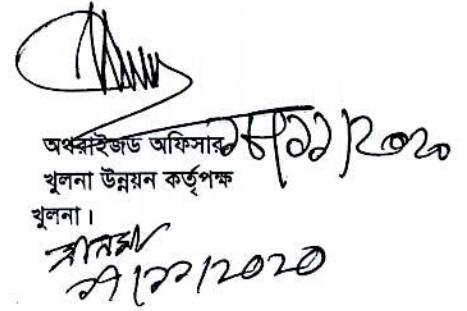 অথরাইজড অফিসার ১৮/১১/২০২০
খুলনা উন্নয়ন কর্তৃপক্ষ
খুলনা।
/১১/২০২০